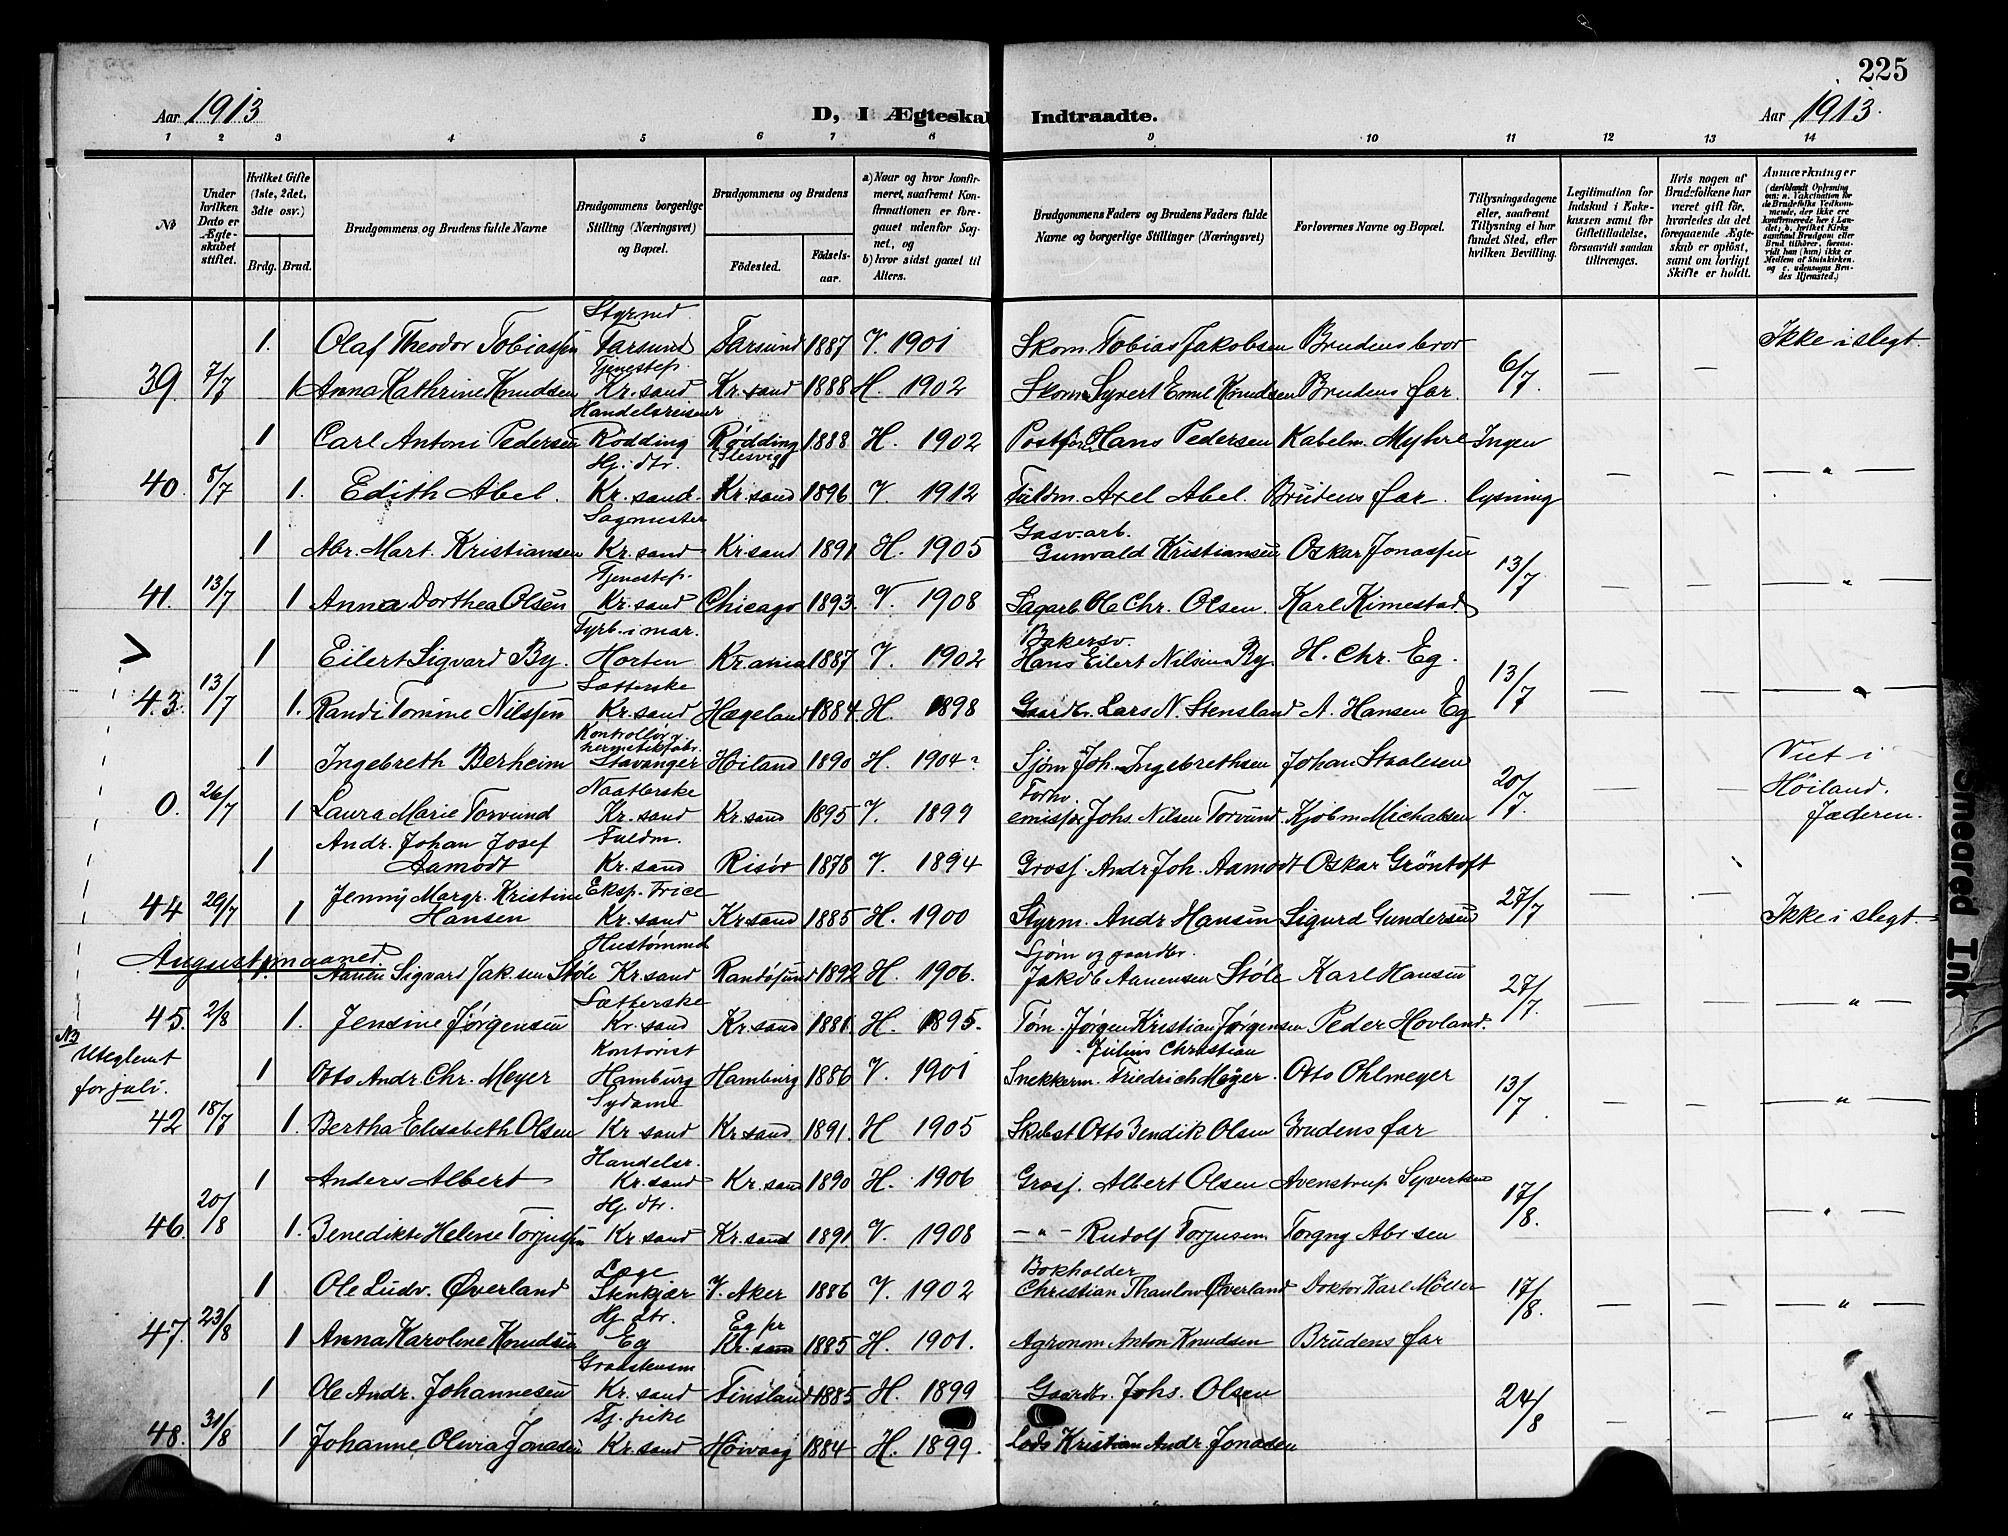 225
Aar 1913 D, I Ægteskab Indtraadte. Aar 1913.
1 2 3 4 5 6 7 8 9 10 11 12 13 14
No
Under hvilken Dato er Ægteskabet stiftet.
Hvilket Gifte (1ste, 2det, 3die osv.)
Brdg. Brud.
Brudgommens og Brudens fulde Navne
Brudgommens borgerlige Stilling (Næringsvei) og Bopæl.
Brudgommens og Brudens
Födested. Födsels-aar.
a) Naar og hvor konfirmeret, saafremt Konfirmationen er foregaaet udenfor Sognet, og
b) hvor sidst gaaet til Alters.
Brudgommens Faders og Brudens Faders fulde Navne og borgerlige Stillinger (Næringsvei)
Forlovernes Navne og Bopæl.
Tillysningsdagene eller, saafremt Tillysning ei har fundet Sted, efter hvilken Bevilling.
Legitimation for Indskud i Enkekassen samt for Giftetilladelse, forsaavidt saadan tiltrænges.
Hvis nogen af Brudefolkene har været gift før, hvorledes da det foregaaende Ægteskab er opløst, samt om lovligt Skifte er holdt.
Anmærkninger
Styrmd.
1. Olaf Theodor Tobiassen Farsund Farsund 1887 V. 1901 Skom. Tobias Jakobsen Brudens bror Ikke i slegt.
Tjenestep.
39. 7/7 1 Anna Kathrine Knudsen Kr. sand Kr. sand 1888 H. 1902 Skom. Syvert Emil Knudsen Brudens far. 6/7. — —
Handelsreisener
1 Carl Antoni Pedersen Rödding Rødding (Slesvig) 1888 H. 1902 Hans Pedersen Kabelm. Myhre Ingen
Hj. dtr.
40. 8/7 1. Edith Abel. Kr. sand. Kr. sand 1896 V. 1912 Fuldm. Axel Abel. Brudens far. lysning — — — " —
Sagmester Gasv. arb.
1 Abr. Mart. Kristiansen Kr. sand Kr. sand 1891 H. 1905 Gunvald Kristiansen Oskar Jonassen
Tjenestep.
41. 13/7 1 Anna Dorthea Olsen Kr. sand Chicago 1893. V. 1908 Sagarb. Ole Chr. Olsen. Karl Kimestad 13/7 — — — " —
Fyrb. i mar. Bakersv.
1 Eilert Sigvard By. Horten Kr. ania 1887 V. 1902 Hans Eilert Nilsen By. H. Chr. Eg.
Sætterske
43. 13/7 1. Randi Tomine Nilssen Kr. sand Hægeland 1884. H. 1898 Gaardbr. Lars N. Stensland A. Hansen Eg 13/7 — — — " —
Kontrollör v. hermetikfabr.
1 Ingebreth Berheim Stavanger Höiland 1890 H. 1904? Sjøm. Joh. Ingebrethsen Johan Staalesen Viet i
Naatlerske
0. 26/7 1 Laura Marie Torvund Kr. sand Kr. sand 1895 V. 1899 Johs. Nilsen Torvund Kjøbm. Michalsen 20/7. — — Høiland, Jæderen.
Andr. Johan Josef Fuldm.
1 Aamodt Kr. sand Risör 1878 V. 1894 Grosj. Andr Joh. Aamodt Oskar Gröntoft
Jenny Margr. Kristine
44 29/7 1 Hansen Kr. sand Kr. sand 1885 H. 1900 Styrm. Andr Hansen Sigurd Gundersen 27/7 — — Ikke i slegt.
August maaned Hustømmd Sjøm og gaardbr.
1. Aanen Sigvard Jak. sen Støle Kr. sand Randøsund 1892 H. 1906. Jakob Aanensen Støle Karl Hansen
Sætterske
45. 2/8 1. Jensine Jørgensen Kr. sand Kr. sand 1881. H. 1895. Tøm. Jørgen Kristian Jørgensen Peder Hovland. 27/7. — — "
NB Uteglemt for juli.
Kontorist Julius Christian
1 Otto Andr. Chr. Meyer Hamburg Hamburg 1886 V. 1901 Snekkerm. Friedrich Meyer. Otto Ohlmeyer
Sydame
42 18/7 1. Bertha Elisabeth Olsen Kr sand Kr. sand 1891 H 1905 Otto Bendik Olsen Brudens far 13/7 — — — " —
Handelsr.
1 Anders Albert Kr. sand Kr. sand 1890 H. 1906 Grosj. Albert Olsen Avenstrup Syvertsen
Hj. dtr.
46. 20/8 1. Benedikte Helene Torjussen Kr. sand Kr. sand 1891 V. 1908 — " — Rudolf Torjusen. Torgny Abr. sen 17/8. — " —
Læge Bokholder
1 Ole Ludv. Øverland Stenkjær V. Aker 1886 V. 1902 Christian Thaulow Øverland Doktor Karl Möller
Hj. dtr. Eg pr
47. 23/8 1 Anna Karoline Knudsen Eg Kr. sand 1885 H. 1901. Agronom Anton Knudsen Brudens far 17/8. — — — " —
Graastensm
1 Ole Andr. Johannesen Kr. sand Finsland 1885 H. 1899 Gaardbr. Johs. Olsen
Tj. pike
48. 31/8 1 Johanne Olivia Jonasen Kr. sand Høivaag 1884 H. 1899. Lods Kristian Andr. Jonasen 24/8 — — — " —
Smeared Ink